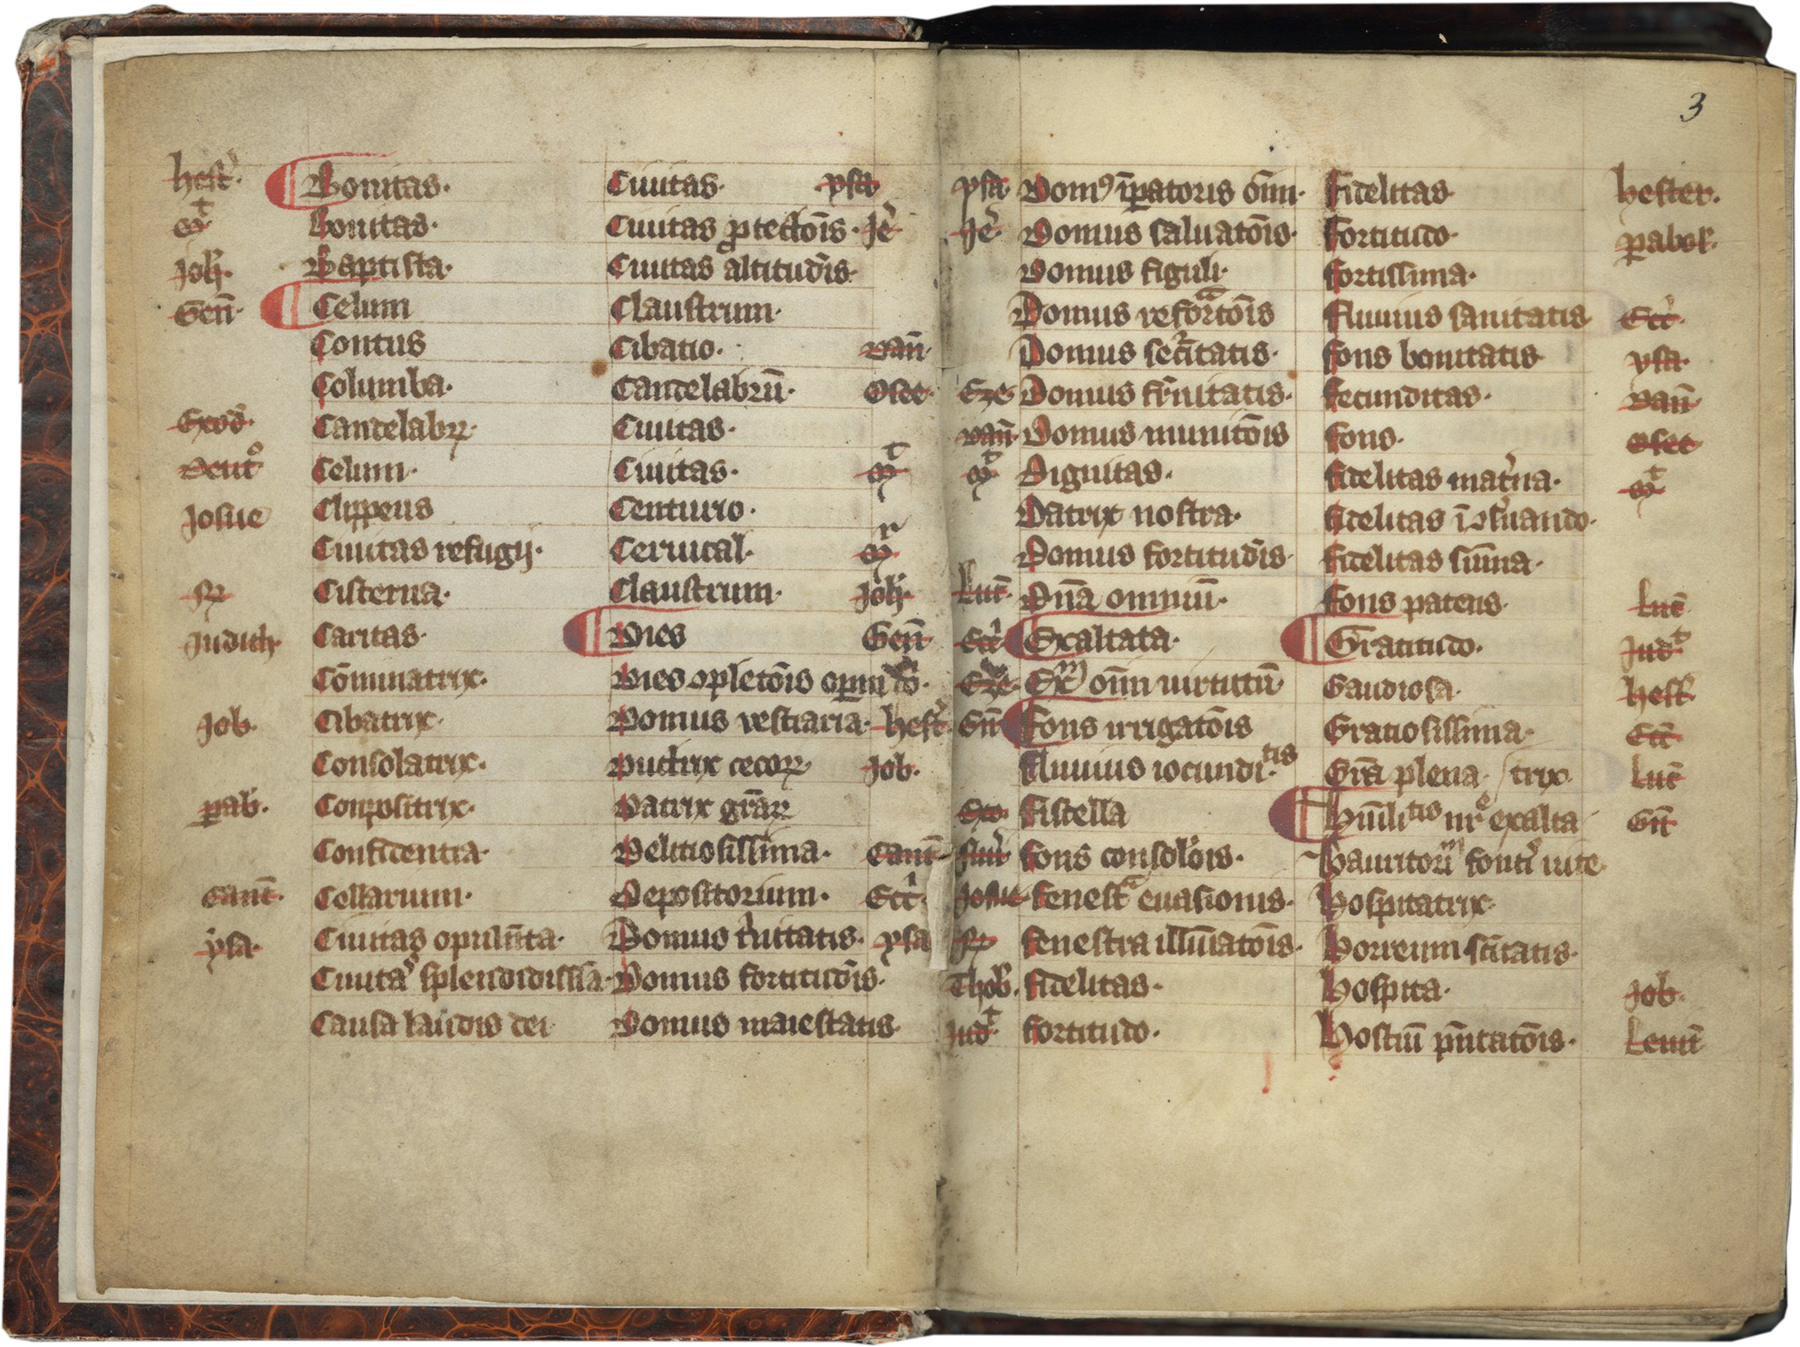 3
hest̉. Bonitas. Ciuitas. ysa
mt Bonitas. Ciuitas ꝓtectōis. Je᷑
Joh̄. Baptista. Ciuitas altitud̄is.
Gen̄. Celum Claustrum.
Contus Cibatio. Dan̄.
Columba. Candelabrū. Osee.
Exod̄. Candelabꝝ. Ciuitas.
Deut͛o Celum. Ciuitas. mt
Josue Clippeus Centurio.
Ciuitas refugij. Ceruical. mr
Cisterna. Claustrum. Joh̄.
Judith Caritas. Dies Gen̄
Cōminatrix. Dies ꝯpletōis oꝑum dei.
Job. Cibatrix. Domus vestiaria. hest̉
Consolatrix. Ductrix cecoꝝ Job.
ꝑab̉. Conpositrix. Datrix gr̄aꝝ
Confidentia. Delitiosissima. Cant̄
Cant̄. Cellarium. Depositorium. Ecc̉i
ysa. Ciuitas opulēta. Domus ysa
Ciuitas splendidissīa. Domus fortitud̄is.
Causa laudis dei Domus maiestatis.
ysa Domꝰ īꝑatoris om̄i. Fidelitas hester.
Je᷑ Domus saluatōis. Fortitudo. ꝑabol̉.
Domus figuli. fortissima.
Domus reforᵃtōis Fluuius sanitatis Ecc̉i.
Domus sec̉itatis. fons bonitatis ysa.
Eze Domus fecunditas. Dan̄
Dan̄. Domus munitōis fons. Osee
mt Dignitas. fidelitas mat̉na. mt
Datrix nostra. fidelitas ī ꝯs̉uando.
Domus fortitud̄is. fidelitas sūma.
Luc̄ Dn̄a omniū. Fons patens. Luc̄
Ecc̉i Exaltata. Gratitudo. Judt
Eze. om̄n uirtutū Gaudiosa. hest̉.
Gn̄ Fons irrigatōis Gratiosissima. Ecc̄.
Fluuius iocunditis. Gr̄a plena. trix. Luc̄
Exo. Fistella Hūilitatis nr̄e exalta Gn̄
fons consol̉ois. fontī uite.
Josue fenestᵃ euasionis. Hospitatrix.
fenestra illūiatōis. Horreum sc̄itatis.
Thob̉. fidelitas. Hospita. Job.
Judt fortitudo. Hostiū p̄ntatōis. Leuit̄